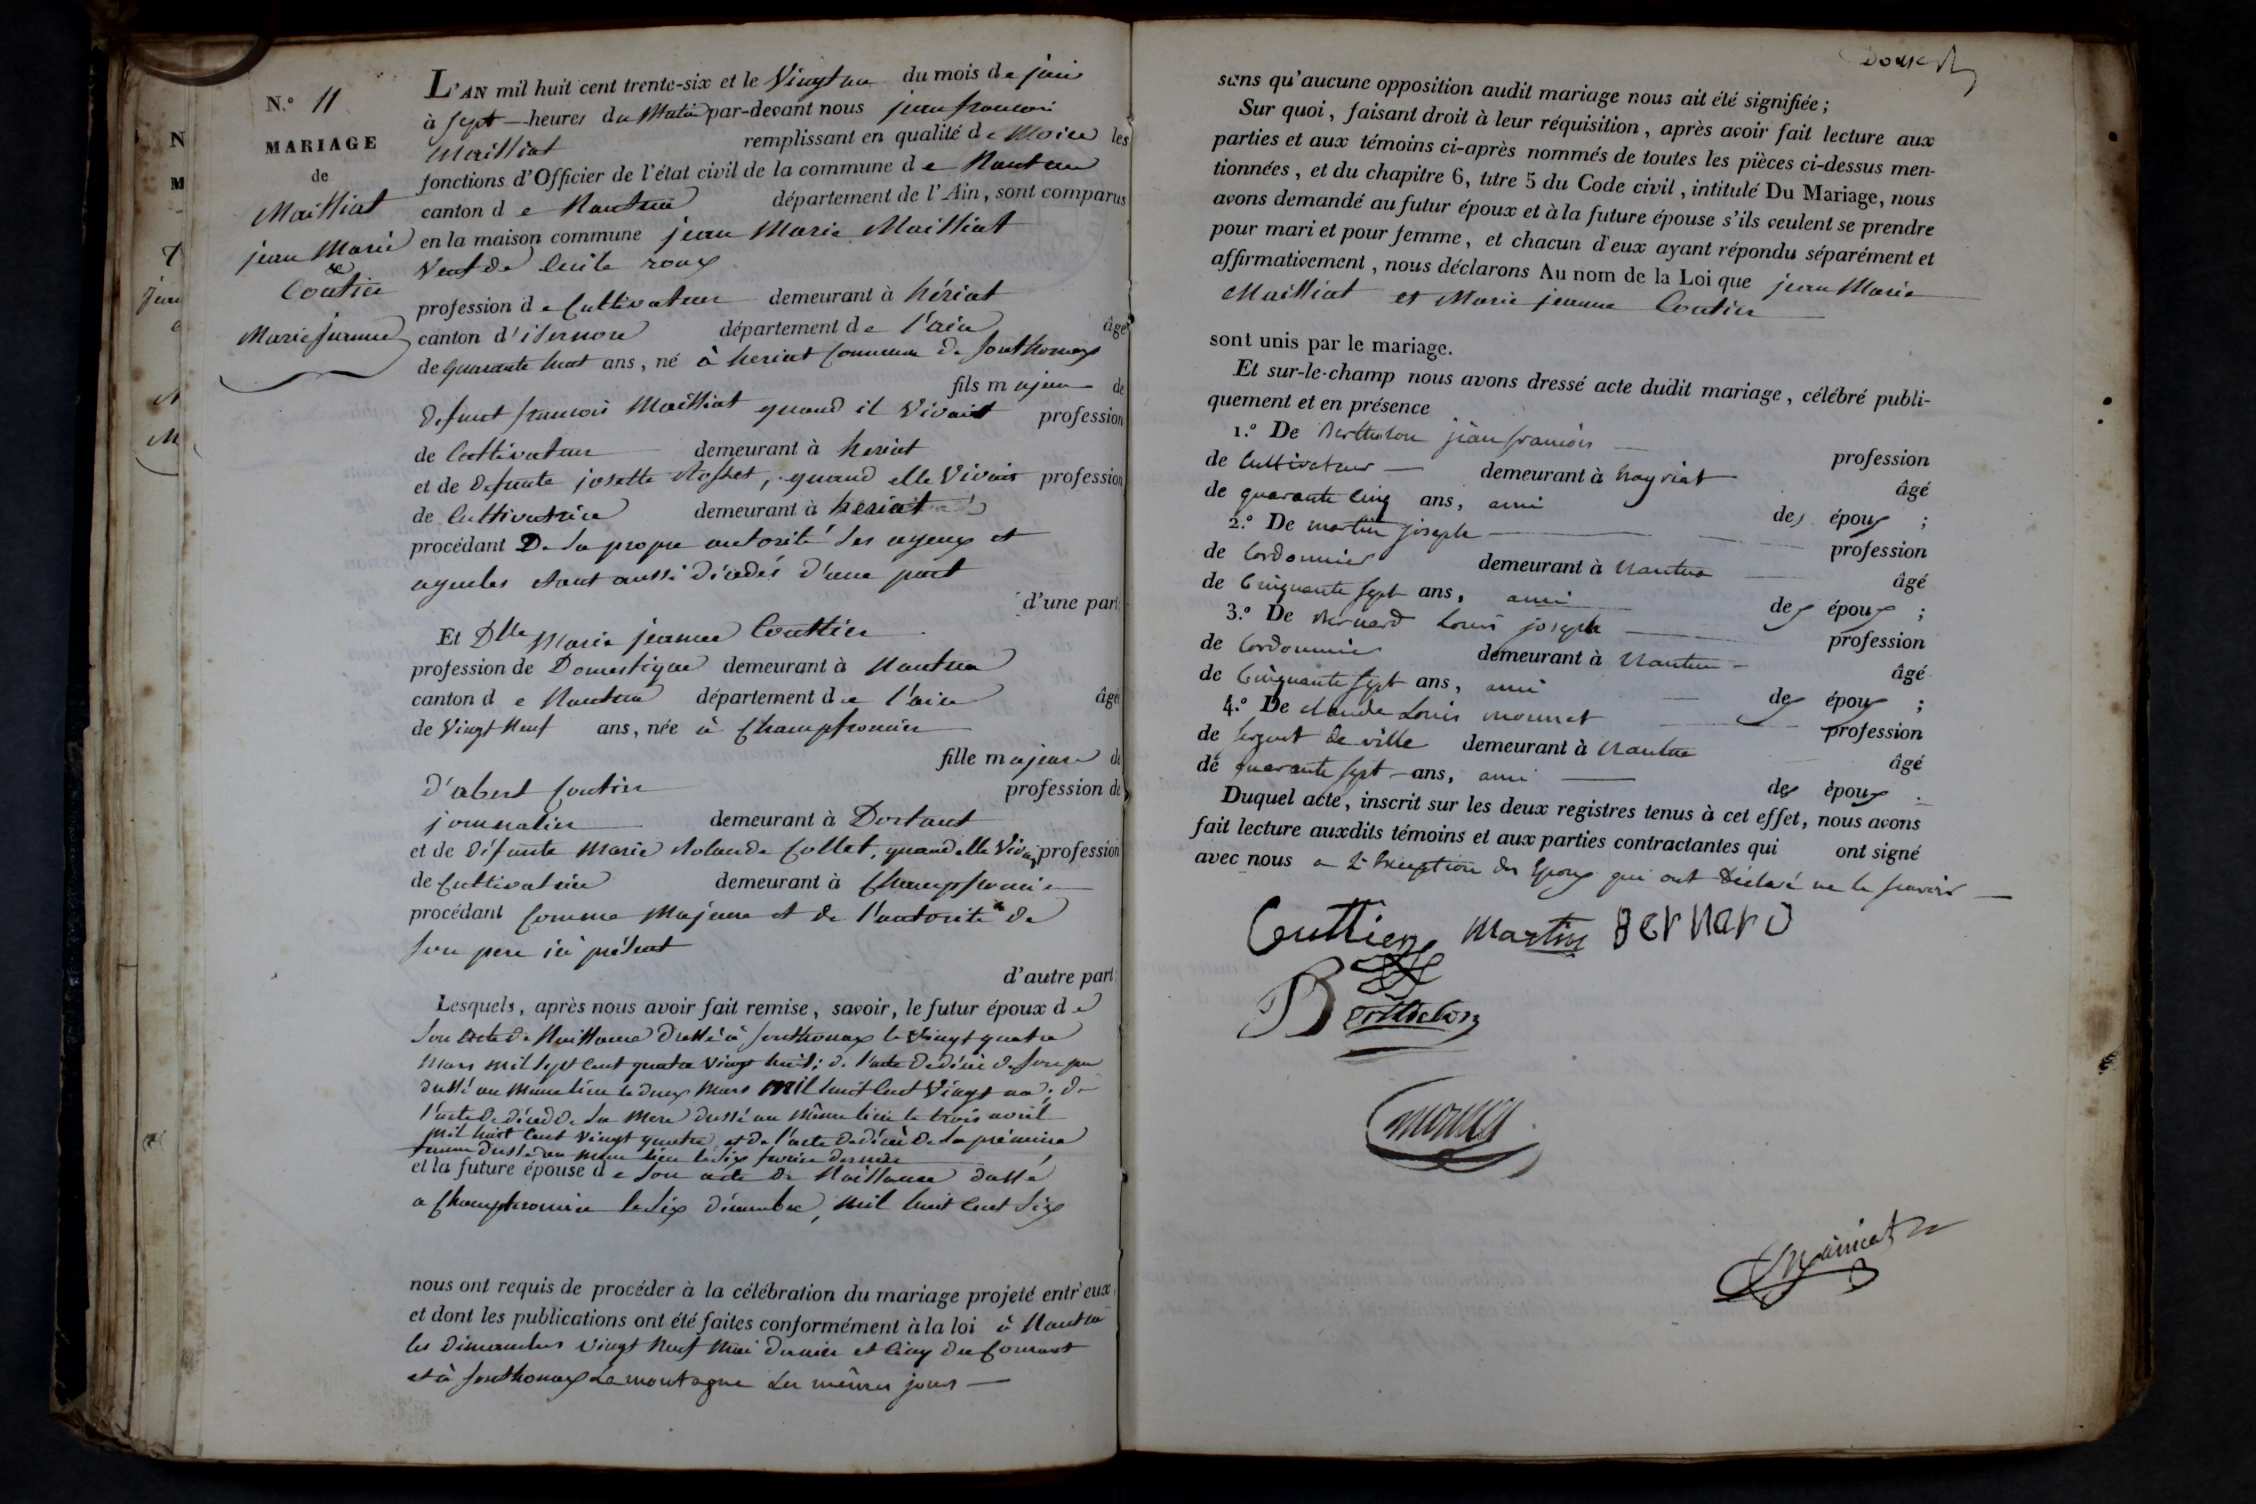 N.° 11
MARIAGE
de
Mailliat
jean Marie
&
Coutier
Marie jeanne
L'AN mil huit cent trente-six et le Vingt un du mois de juin
à sept heures du Matin par-devant nous jean francois
Mailliat remplissant en qualité de Maire les
fonctions d'Officier de l'état civil de la commune de Nantua
canton de Nantua département de l'Ain, sont comparus
en la maison commune jean Marie Mailliat
Veuf de Cecile roux
profession de Cultivateur demeurant à hériat
canton d'isernore département de l'ain âgé
de quarante huit ans, né à heriat Commune de Sonthonax
fils majeur de
défunt francois Mailliat quand il Vivait profession
de Cultivateur demeurant à heriat
et de defunte josette Rosset, quand elle Vivait profession
de Cultivatrice demeurant à heriat
procédant De sa propre autorité ses ayeux et
ayeules étant aussi décédés d'une part
d'une part
Et Dlle Marie jeanne Couttier
profession de Domestique demeurant à Nantua
canton de Nantua département de l'ain âgé
de Vingt Neuf ans, née à Champfromier
fille majeure de
d'abert Coutier profession de
journalier demeurant à Dortant
et de défunte Marie Rolande Collet, quand elle Vivait profession
de Cultivatrice demeurant à Champfromier
procédant Comme Majeure et de l'autorité de
son pere ici présent
d'autre part
Lesquels, après nous avoir fait remise, savoir, le futur époux de
son acte de Naissance dressé à Sonthonax le Vingt quatre
Mars mil sept cent quatre Vingt huit; de l'acte de décès de son pere
dressé au même lieu le deux Mars mil huit Cent Vingt un; de
l'acte de décès de sa Mere dressé au même lieu le trois avril
mil huit Cent Vingt quatre et de l'acte de décès de sa première
femme dressé au même lieu le six fevrier dernier
et la future épouse de son acte de Naissance dressé
a Champfromier le six décembre, mil huit Cent six
nous ont requis de procéder à la célébration du mariage projeté entr'eux
et dont les publications ont été faites conformément à la loi à Nantua
les dimanches vingt Neuf Mai dernier et Cinq du Courant
et à Sonthonax La montagne les mêmes jours
sans qu'aucune opposition audit mariage nous ait été signifiée;
Sur quoi, faisant droit à leur réquisition, après avoir fait lecture aux
parties et aux témoins ci-après nommés de toutes les pièces ci-dessus men-
tionnées, et du chapitre 6, titre 5 du Code civil, intitulé Du Mariage, nous
avons demandé au futur époux et à la future épouse s'ils veulent se prendre
pour mari et pour femme, et chacun d'eux ayant répondu séparément et
affirmativement, nous déclarons Au nom de la Loi que jean Marie
Mailliat et Marie jeanne Coutier
sont unis par le mariage.
Et sur-le-champ nous avons dressé acte dudit mariage, célébré publi-
quement et en présence
1.° De Berthelon jean francois profession
de Cultivateur demeurant à nayriat âgé
de quarante Cinq ans, ami des époux ;
2.° De martin joseph profession
de Cordonnier demeurant à Nantua âgé
de Cinquante sept ans, ami des époux ;
3.° De Bernard Louis joseph profession
de Cordonnier demeurant à Nantua âgé
de Cinquante sept ans, ami des époux ;
4.° De claude Louis mounet profession
de sergent de ville demeurant à Nantua âgé
de quarante sept ans, ami des époux .
Duquel acte, inscrit sur les deux registres tenus à cet effet, nous avons
fait lecture auxdits témoins et aux parties contractantes qui ont signé
avec nous a L'Exception des Epoux qui ont Déclaré ne le savoir
Cuttier Martin Bernard
Berthelon